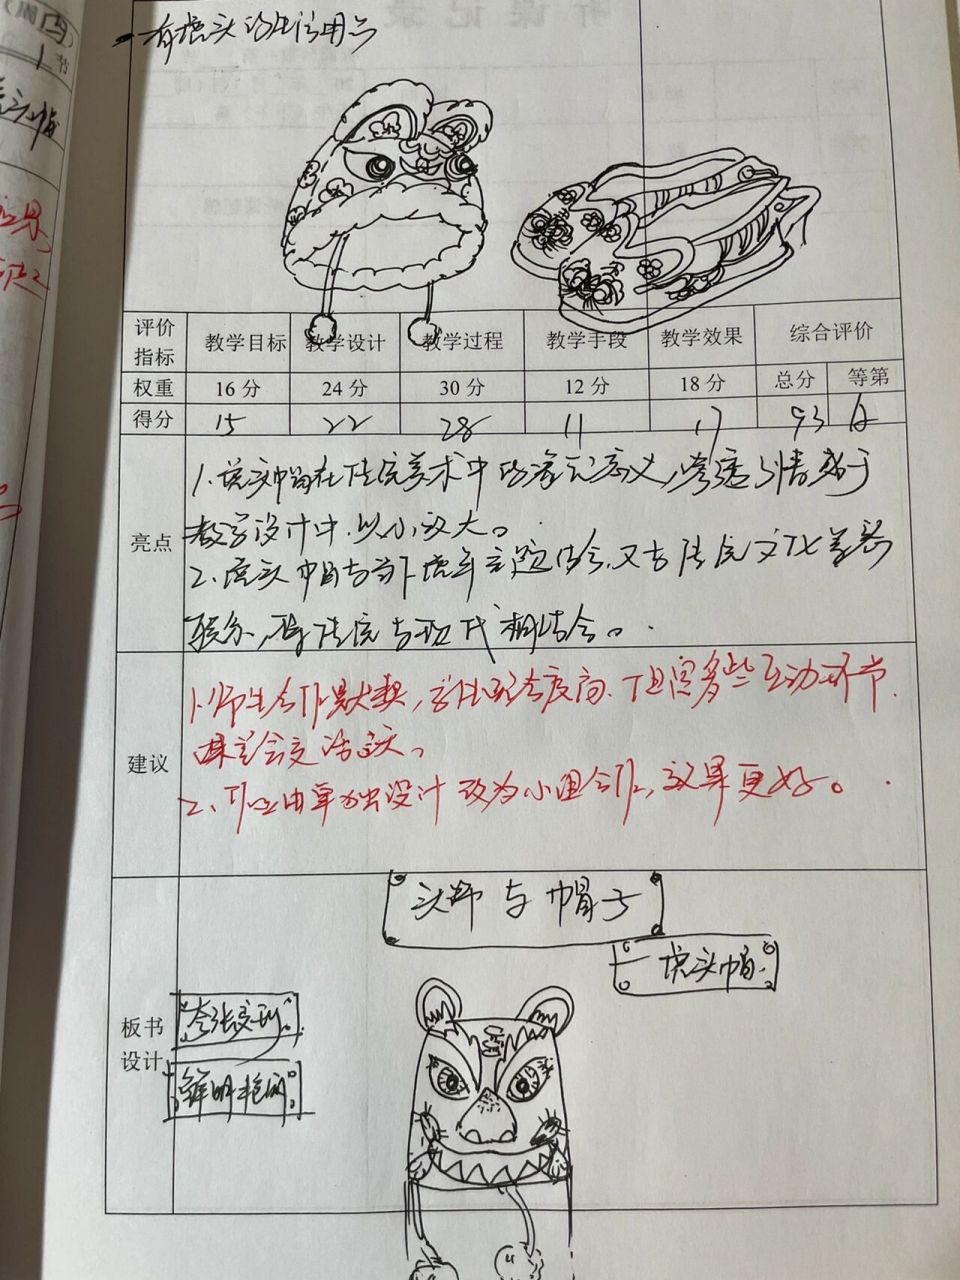 有虎头的生活用品
评价指标 教学目标 教学设计 教学过程 教学手段 教学效果 综合评价
权重 16分 24分 30分 12分 18分 总分 等第
得分 15 22 28 11 17 93 A
亮点
1.虎头帽在传统美术中的意义,渗透
教学设计中,以小放大。
2.虎头帽与当下虎年主题结合,又与传统文化
联系,将传统与现代相结合。
建议
1.师生合作默契,学生配合度高,但需多些互动环节,
课堂会更活跃。
2.可由单独设计改为小组合作,效果更好。
板书设计
头饰与帽子
—虎头帽
夸张变形
鲜明艳丽